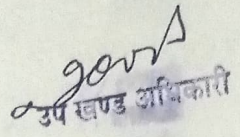 उप खण्ड अधिकारी